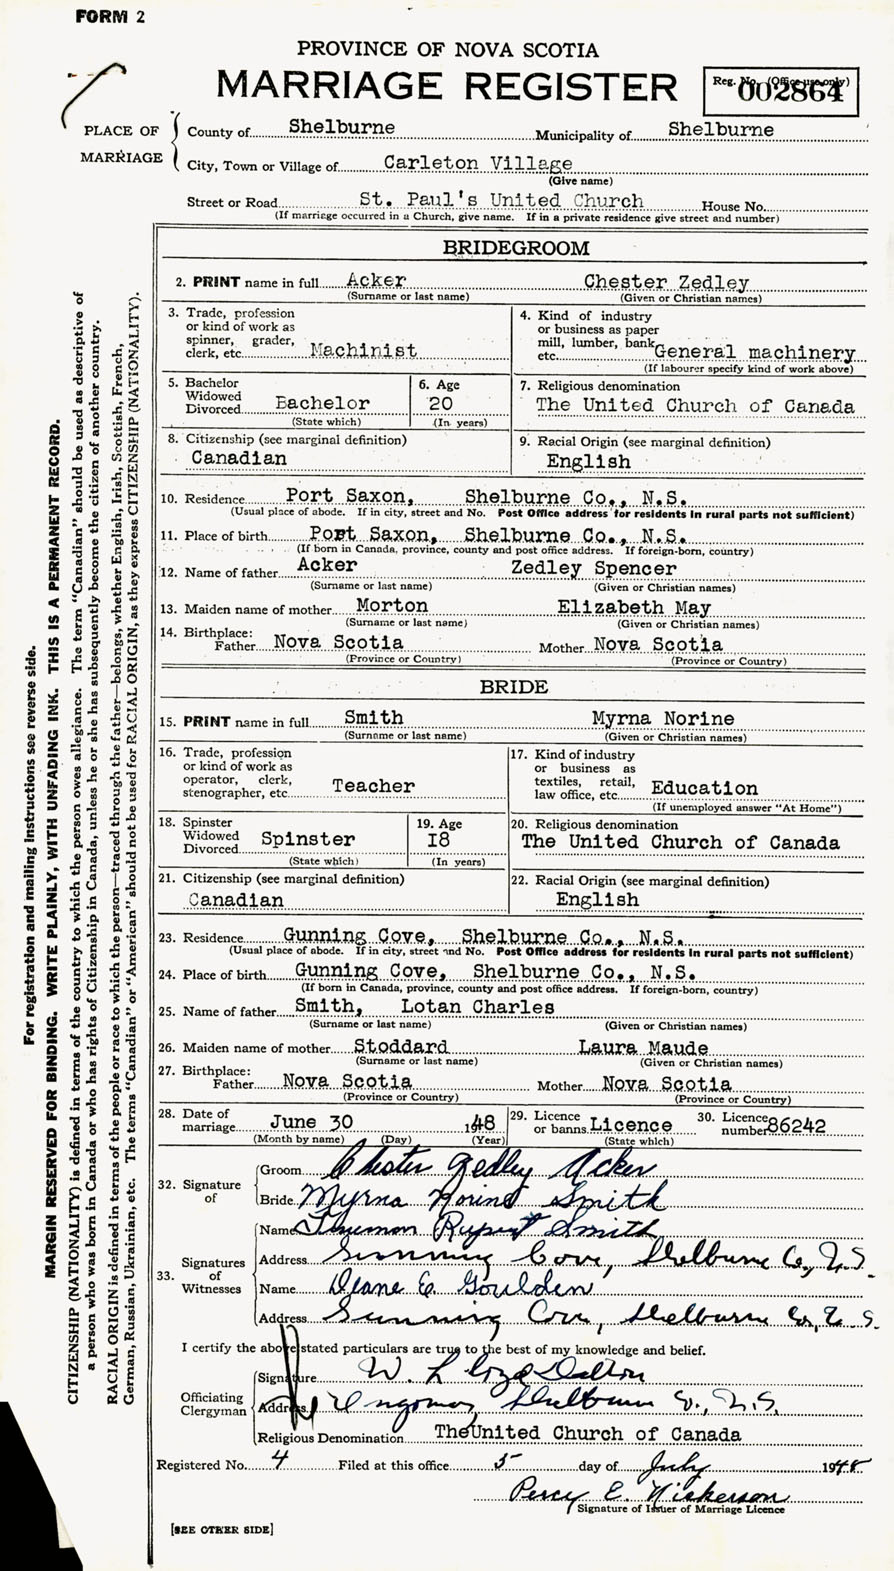 FORM 2
PROVINCE OF NOVA SCOTIA
MARRIAGE REGISTER
Reg. No. (Office use only)
002864
PLACE OF MARRIAGE
County of Shelburne Municipality of Shelburne
City, Town or Village of Carleton Village
(Give name)
Street or Road St. Paul's United Church House No.
(If marriage occurred in a Church, give name. If in a private residence give street and number)
BRIDEGROOM
2. PRINT name in full Acker Chester Zedley
(Surname or last name) (Given or Christian names)
3. Trade, profession
or kind of work as
spinner, grader,
clerk, etc. Machinist
4. Kind of industry
or business as paper
mill, lumber, bank,
etc. General machinery
(If labourer specify kind of work above)
5. Bachelor
Widowed
Divorced Bachelor
(State which)
6. Age
20
(In years)
7. Religious denomination
The United Church of Canada
8. Citizenship (see marginal definition)
Canadian
9. Racial Origin (see marginal definition)
English
10. Residence Port Saxon, Shelburne Co., N.S.
(Usual place of abode. If in city, street and No. Post Office address for residents in rural parts not sufficient)
11. Place of birth Port Saxon, Shelburne Co., N.S.
(If born in Canada, province, county and post office address. If foreign-born, country)
12. Name of father Acker Zedley Spencer
(Surname or last name) (Given or Christian names)
13. Maiden name of mother Morton Elizabeth May
(Surname or last name) (Given or Christian names)
14. Birthplace:
Father Nova Scotia Mother Nova Scotia
(Province or Country) (Province or Country)
BRIDE
15. PRINT name in full Smith Myrna Norine
(Surname or last name) (Given or Christian names)
16. Trade, profession
or kind of work as
operator, clerk,
stenographer, etc. Teacher
17. Kind of industry
or business as
textiles, retail,
law office, etc. Education
(If unemployed answer "At Home")
18. Spinster
Widowed
Divorced Spinster
(State which)
19. Age
I8
(In years)
20. Religious denomination
The United Church of Canada
21. Citizenship (see marginal definition)
Canadian
22. Racial Origin (see marginal definition)
English
23. Residence Gunning Cove, Shelburne Co., N.S.
(Usual place of abode. If in city, street and No. Post Office address for residents in rural parts not sufficient)
24. Place of birth Gunning Cove, Shelburne Co., N.S.
(If born in Canada, province, county and post office address. If foreign-born, country)
25. Name of father Smith, Lotan Charles
(Surname or last name) (Given or Christian names)
26. Maiden name of mother Stoddard Laura Maude
(Surname or last name) (Given or Christian names)
27. Birthplace:
Father Nova Scotia Mother Nova Scotia
(Province or Country) (Province or Country)
28. Date of
marriage June 30 1948
(Month by name) (Day) (Year)
29. Licence
or banns Licence
(State which)
30. Licence
number 86242
32. Signature of
Groom Chester Zedley Acker
Bride Myrna Norine Smith
33. Signatures of Witnesses
Name Freemon Rupert Smith
Address Gunning Cove, Shelburne Co., N.S.
Name Deane E. Goulden
Address Gunning Cove, Shelburne Co., N.S.
I certify the above stated particulars are true to the best of my knowledge and belief.
Officiating Clergyman
Signature W. Lloyd Dalton
Address Ingomar, Shelburne Co., N.S.
Religious Denomination The United Church of Canada
Registered No. 4 Filed at this office 5 day of July 1948
Percy E. Nickerson
Signature of Issuer of Marriage Licence
[SEE OTHER SIDE]
For registration and mailing instructions see reverse side.
MARGIN RESERVED FOR BINDING. WRITE PLAINLY, WITH UNFADING INK. THIS IS A PERMANENT RECORD.
CITIZENSHIP (NATIONALITY) is defined in terms of the country to which the person owes allegiance. The term "Canadian" should be used as descriptive of
a person who was born in Canada or who has rights of Citizenship in Canada, unless he or she has subsequently become the citizen of another country.
RACIAL ORIGIN is defined in terms of the people or race to which the person—traced through the father—belongs, whether English, Irish, Scottish, French,
German, Russian, Ukrainian, etc. The terms "Canadian" or "American" should not be used for RACIAL ORIGIN, as they express CITIZENSHIP (NATIONALITY).